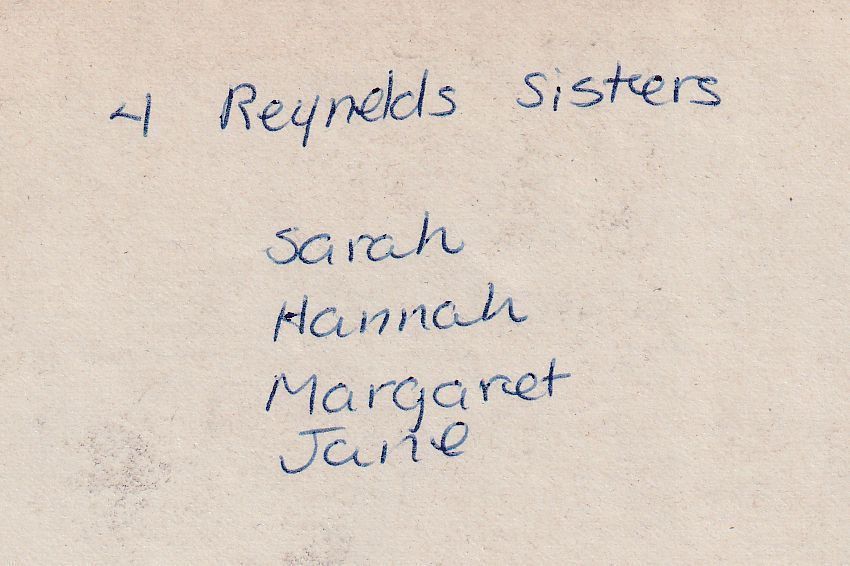 4 Reynolds Sisters
Sarah
Hannah
Margaret
Jane